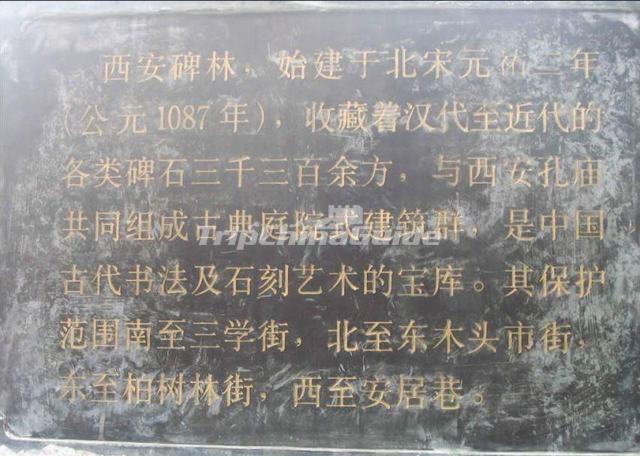 西安碑林，始建于北宋元祐二年
（公元1087年），收藏着汉代至近代的
各类碑石三千三百余方，与西安孔庙
共同组成古典庭院式建筑群，是中国
TripChinaGuide
古代书法及石刻艺术的宝库。其保护
范围南至三学街，北至东木头市街，
东至柏树林街，西至安居巷。